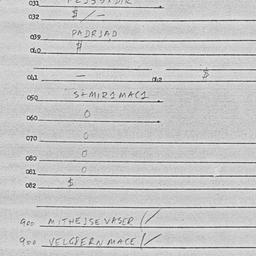 031
032 $/-
039 PADRJAD
040 #
041 - 042 $
050 S+MIR1MAC1
060 0
070 0
080 0
081 0
082 $
900 MITHEJSEVASER /
900 VELGFERN MACE /